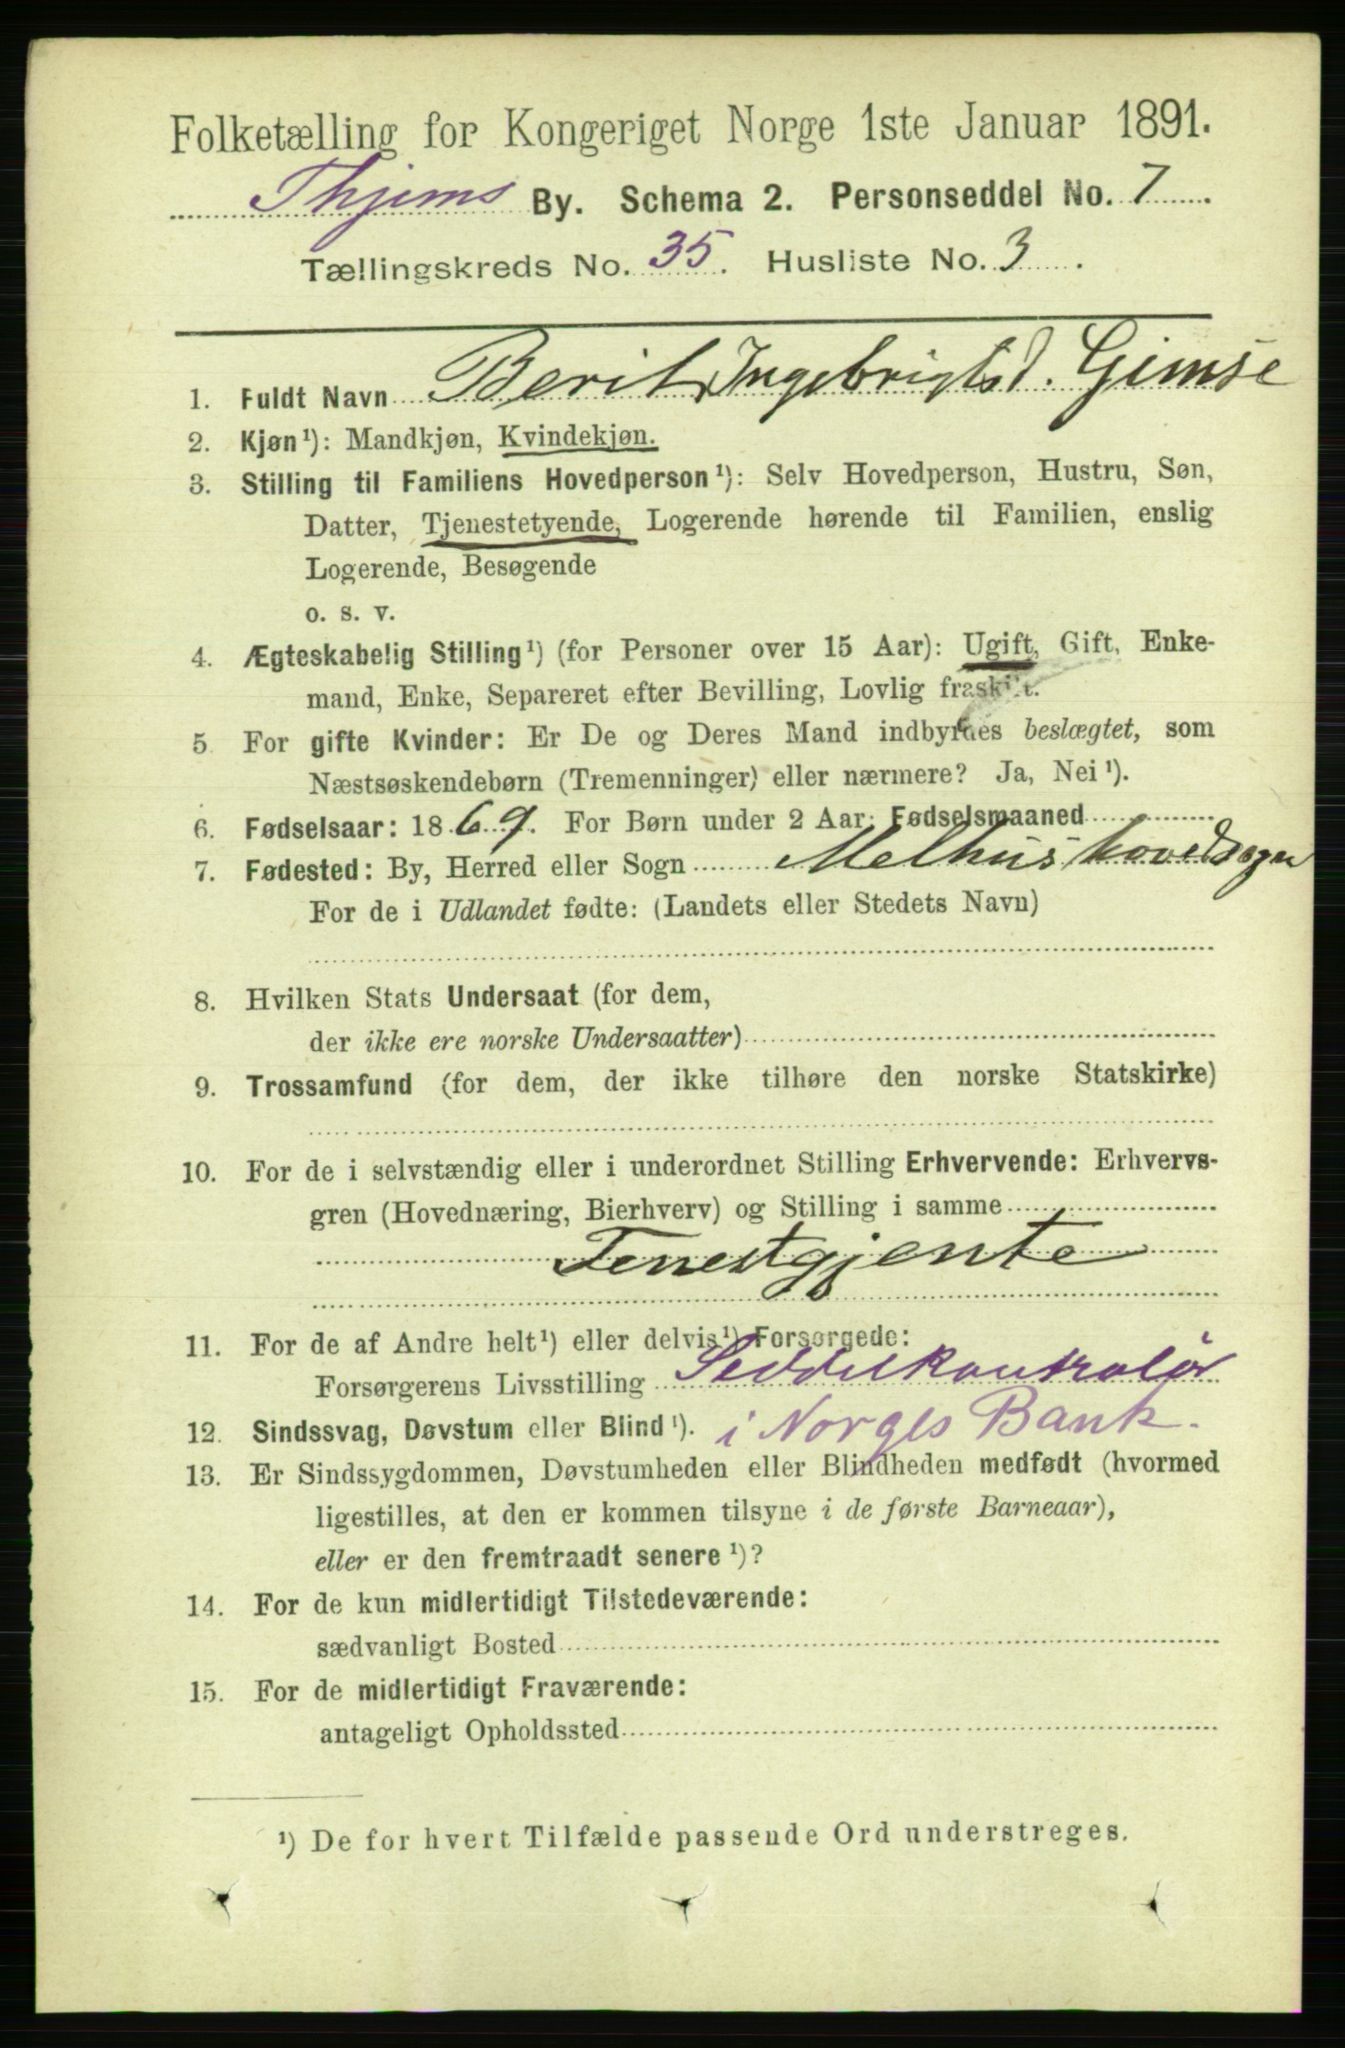 Folketælling for Kongeriget Norge 1ste Januar 1891.
Thjems By. Schema 2. Personseddel No. 7.
Tællingskreds No. 35. Husliste No. 3.
1. Fuldt Navn Berit Ingebrigtsd. Gimse
2. Kjøn¹): Mandkjøn, Kvindekjøn.
3. Stilling til Familiens Hovedperson¹): Selv Hovedperson, Hustru, Søn,
Datter, Tjenestetyende, Logerende hørende til Familien, enslig
Logerende, Besøgende
o. s. v.
4. Ægteskabelig Stilling¹) (for Personer over 15 Aar): Ugift, Gift, Enke-
mand, Enke, Separeret efter Bevilling, Lovlig fraskilt.
5 For gifte Kvinder: Er De og Deres Mand indbyrdes beslægtet, som
Næstsøskendebørn (Tremenninger) eller nærmere? Ja, Nei¹).
6. Fødselsaar: 1869. For Børn under 2 Aar: Fødselsmaaned
7. Fødested: By, Herred eller Sogn Melhus hovedsogn
For de i Udlandet fødte: (Landets eller Stedets Navn)
8. Hvilken Stats Undersaat (for dem,
der ikke ere norske Undersaatter)
9. Trossamfund (for dem, der ikke tilhøre den norske Statskirke)
10. For de i selvstændig eller i underordnet Stilling Erhvervende: Erhvervs-
gren (Hovednæring, Bierhverv) og Stilling i samme
Tenestgjente
11. For de af Andre helt¹) eller delvis¹) Forsørgede:
Forsørgerens Livsstilling Seddelkontralør
12. Sindssvag, Døvstum eller Blind¹). i Norges Bank.
13. Er Sindssygdommen, Døvstumheden eller Blindheden medfødt (hvormed
ligestilles, at den er kommen tilsyne i de første Barneaar),
eller er den fremtraadt senere¹)?
14. For de kun midlertidigt Tilstedeværende:
sædvanligt Bosted
15. For de midlertidigt Fraværende:
antageligt Opholdssted
¹) De for hvert Tilfælde passende Ord understreges.